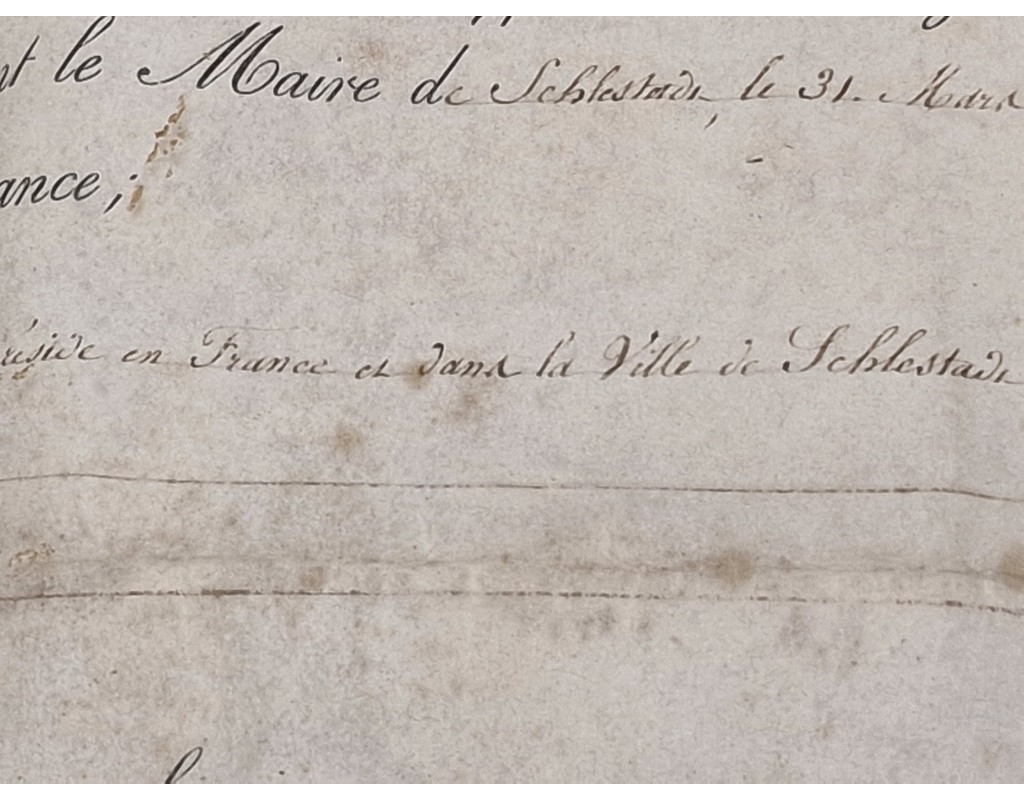 le Maire de Schlestadt, le 31. Mars
ance;
réside en France et dans la Ville de Schlestadt